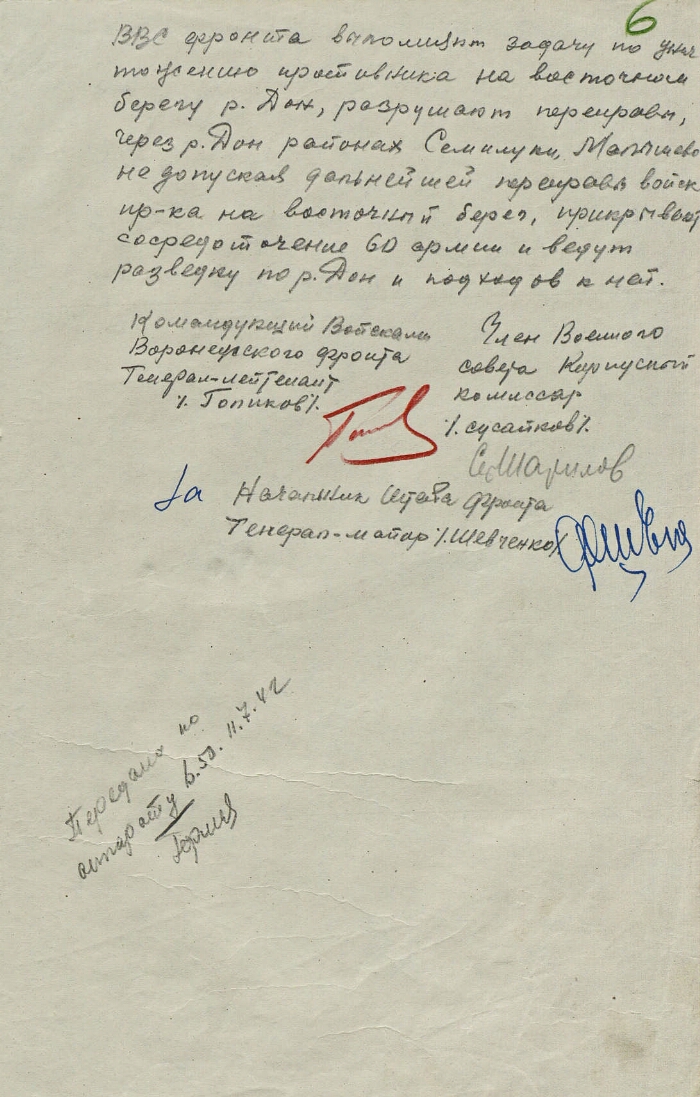 6
ВВС фронта выполняют задачу по унич
тожению противника на восточном
берегу р. Дон, разрушают переправы,
через р. Дон районах Семилуки, Малышево
не допуская дальнейшей переправы войск
пр-ка на восточный берег, прикрывают
сосредоточение 60 армии и ведут
разведку по р. Дон и подходов к ней.
Командующий Войсками
Воронежского фронта
Генерал-лейтенант
/. Голиков/.
Член Военного
совета Корпусный
комиссар
/. Сусайков/.
За Начальник штаба фронта
Генерал-майор /. Шевченко/
Передана по
аппарату 6.50. 11.7.42